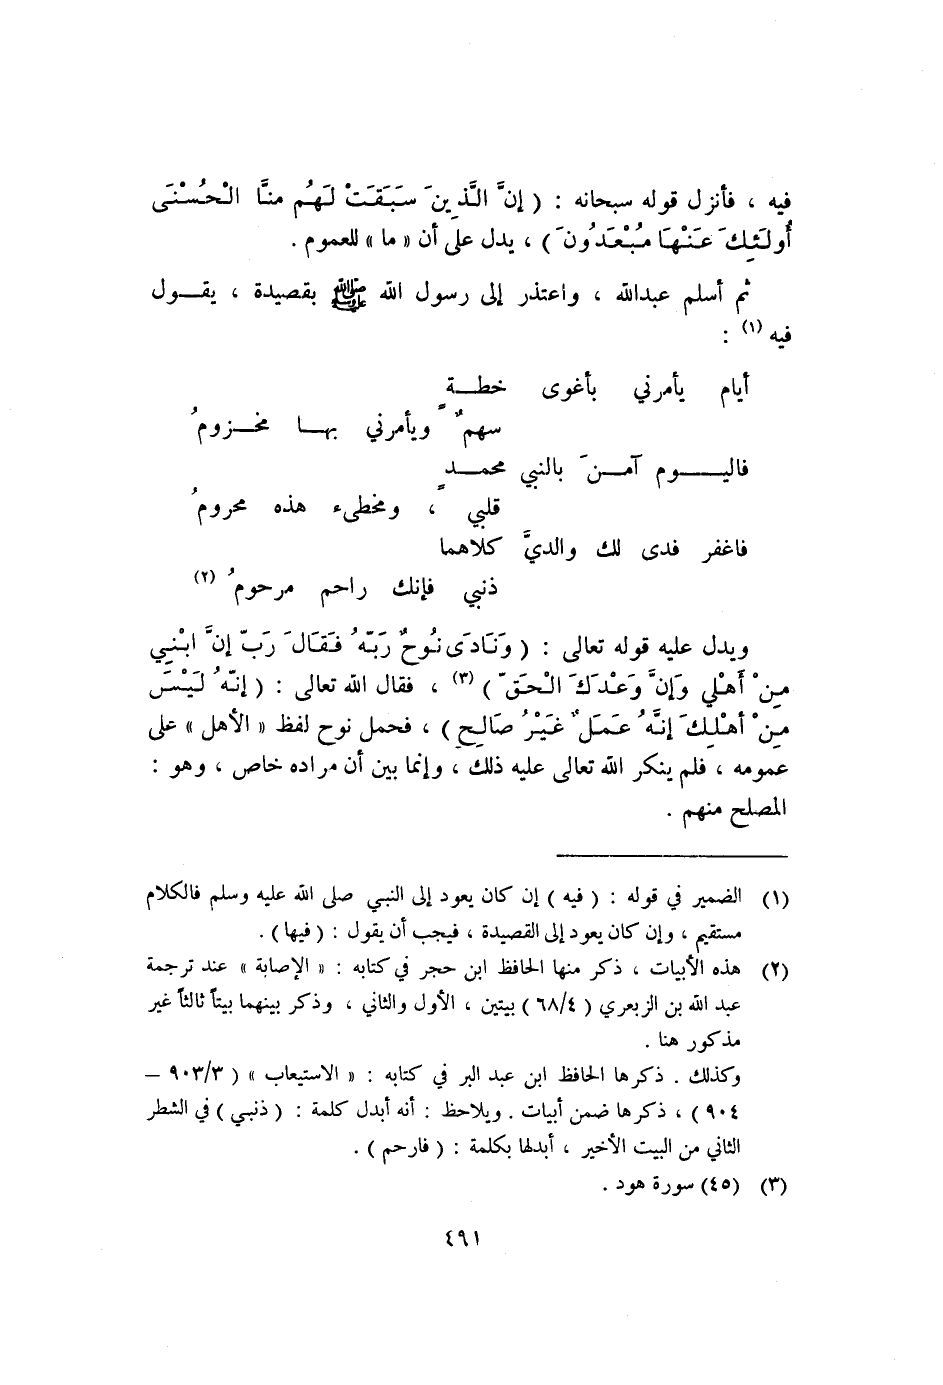 فيه ، فأنزل قوله سبحانه : ( إِنَّ الَّذِينَ سَبَقَتْ لَهُم مِنَّا الْحُسْنَى
أُولَئِكَ عَنْهَا مُبْعَدُونَ ) ، يدل على أن « ما » للعموم .
ثم أسلم عبدالله ، واعتذر إلى رسول الله ﷺ بقصيدة ، يقول
فيه (١) :
أيام يأمرني بأغوى خطةٍ
سهمٌ ويأمرني بها مخزومُ
فاليوم آمنَ بالنبي محمدٍ
قلبي ، ومخطىء هذه محرومُ
فاغفر فدى لك والديَّ كلاهما
ذنبي فإنك راحم مرحومُ (٢)
ويدل عليه قوله تعالى : ( وَنَادَى نُوحٌ رَبَّهُ فَقَالَ رَبّ إِنَّ ابْنِي
مِنْ أَهْلِي وَإِنَّ وَعْدَكَ الْحَقّ ) (٣) ، فقال الله تعالى : ( إِنَّهُ لَيْسَ
مِنْ أَهْلِكَ إِنَّهُ عَمَلٌ غَيْرُ صَالِحٍ ) ، فحمل نوح لفظ « الأهل » على
عمومه ، فلم ينكر الله تعالى عليه ذلك ، وإنما بين أن مراده خاص ، وهو :
المصلح منهم .
(١) الضمير في قوله : ( فيه ) إن كان يعود إلى النبي صلى الله عليه وسلم فالكلام
مستقيم ، وإن كان يعود إلى القصيدة ، فيجب أن يقول : ( فيها ) .
(٢) هذه الأبيات ، ذكر منها الحافظ ابن حجر في كتابه : « الإصابة » عند ترجمة
عبد الله بن الزبعري ( ٦٨/٤ ) بيتين ، الأول والثاني ، وذكر بينهما بيتاً ثالثاً غير
مذكور هنا .
وكذلك . ذكرها الحافظ ابن عبد البر في كتابه : « الاستيعاب » ( ٩٠٣/٣ –
٩٠٤ ) ، ذكرها ضمن أبيات . ويلاحظ : أنه أبدل كلمة : ( ذنبي ) في الشطر
الثاني من البيت الأخير ، أبدلها بكلمة : ( فارحم ) .
(٣) (٤٥) سورة هود .
٤٩١